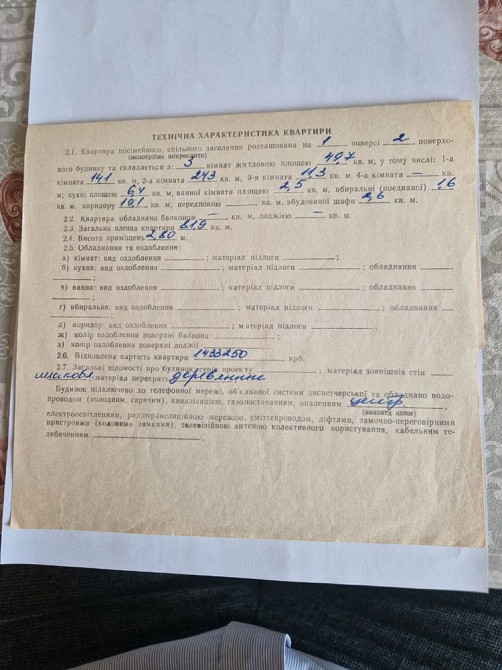 ТЕХНІЧНА ХАРАКТЕРИСТИКА КВАРТИРИ
2.1. Квартира посімейного, спільного заселення розташована на 1 поверсі 2 поверхо-
(непотрібне викреслити)
вого будинку та складається з: 3 кімнат житловою площею 49,7 кв. м, у тому числі: 1-а
кімната 14,1 кв. м, 2-а кімната 24,3 кв. м, 3-я кімната 11,3 кв. м, 4-а кімната — кв.
м; кухні площею 6,4 кв. м, ванної кімнати площею 2,5 кв. м, вбиральні (поєднаної) 1,6
кв. м, коридору 19,1 кв. м, передпокою кв. м, вбудованої шафи 2,6 кв. м.
2.2. Квартира обладнана балконом — кв. м, лоджією — кв. м.
2.3. Загальна площа квартири 81,9 кв. м.
2.4. Висота приміщень 2,80 м.
2.5. Обладнання та оздоблення:
а) кімнат: вид оздоблення ; матеріал підлоги ;
б) кухня: вид оздоблення ; матеріал підлоги ; обладнання
;
в) ванна: вид оздоблення ; матеріал підлоги ; обладнання
;
г) вбиральня: вид оздоблення ; матеріал підлоги ; обладнання
;
д) коридор: вид оздоблення ; матеріал підлоги ;
ж) колір оздоблення поверхні балкона ;
з) колір оздоблення поверхні лоджії .
2.6. Відновлена вартість квартири 1433250 крб.
2.7. Загальні відомості про будинок: серія проекту ; матеріал зовнішніх стін
матеріал перекриття
Будинок підключено до телефонної мережі, об'єднаної системи диспетчерської та обладнано водо-
проводом (холодним, гарячим), каналізацією, газопостачанням, опаленням центр ,
(вказати яким)
електроосвітленням, радіотрансляційною мережею, сміттєпроводом, ліфтами, замочно-переговорними
пристроями (кодовими замками), телевізійною антеною колективного користування, кабельним те-
лебаченням